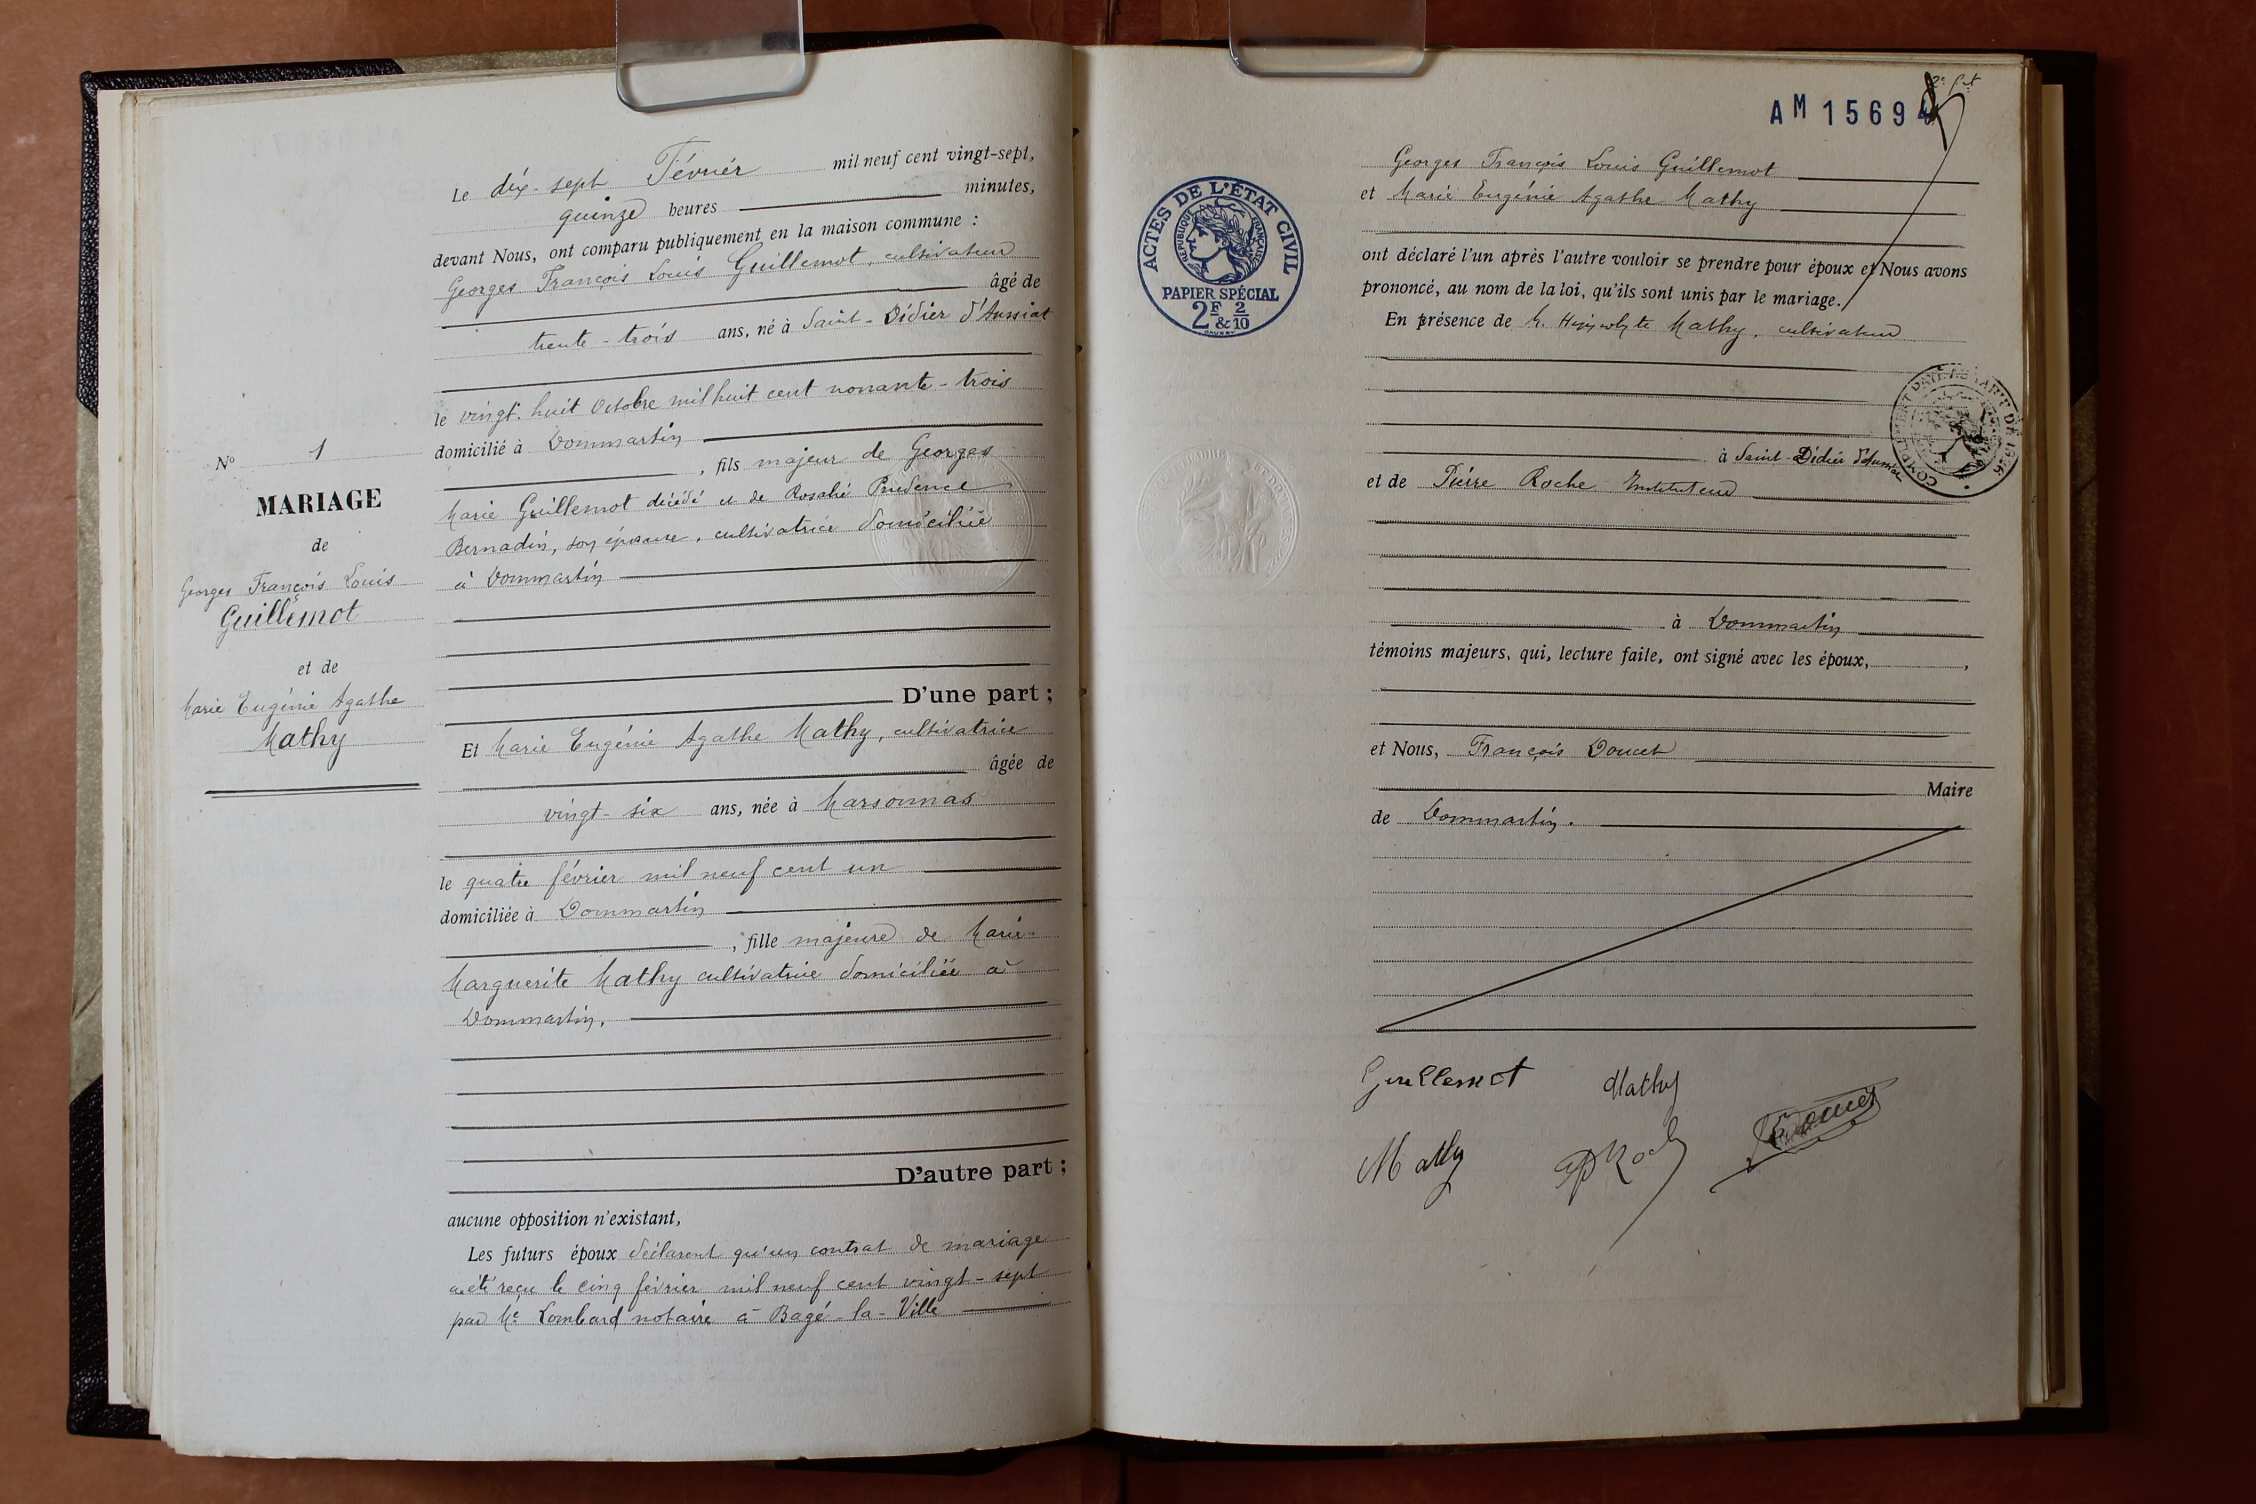 Le dix-sept Février mil neuf cent vingt-sept,
quinze heures minutes,
devant Nous, ont comparu publiquement en la maison commune :
Georges François Louis Guillemot, cultivateur
âgé de
trente-trois ans, né à Saint-Didier d'Aussiat
le vingt-huit Octobre mil huit cent nonante-trois
domicilié à Dommartin
, fils majeur de Georges
Marie Guillemot décédé et de Rosalie Prudence
Bernadin, son épouse, cultivatrice domiciliée
à Dommartin
D'une part ;
Et Marie Eugénie Agathe Mathy, cultivatrice
âgée de
vingt-six ans, née à Marsonnas
le quatre février mil neuf cent un
domiciliée à Dommartin
, fille majeure de Marie-
Marguerite Mathy cultivatrice domiciliée à
Dommartin.
D'autre part ;
aucune opposition n'existant,
Les futurs époux déclarent qu'un contrat de mariage
a été reçu le cinq février mil neuf cent vingt-sept
par Me Lombard notaire à Bagé-la-Ville
No 1
MARIAGE
de
Georges François Louis
Guillemot
et de
Marie Eugénie Agathe
Mathy
AM 1569
ACTES DE L'ÉTAT CIVIL
RÉPUBLIQUE FRANÇAISE
PAPIER SPÉCIAL
2F & 2/10
Georges François Louis Guillemot
et Marie Eugénie Agathe Mathy
ont déclaré l'un après l'autre vouloir se prendre pour époux et Nous avons
prononcé, au nom de la loi, qu'ils sont unis par le mariage.
En présence de M. Hippolyte Mathy, cultivateur
à Saint-Didier d'Aussiat
et de Pierre Roche Instituteur
à Dommartin
témoins majeurs, qui, lecture faite, ont signé avec les époux, ,
et Nous, François Doucet
Maire
de Dommartin.
Guillemot Mathy
Mathy P Roche Doucet